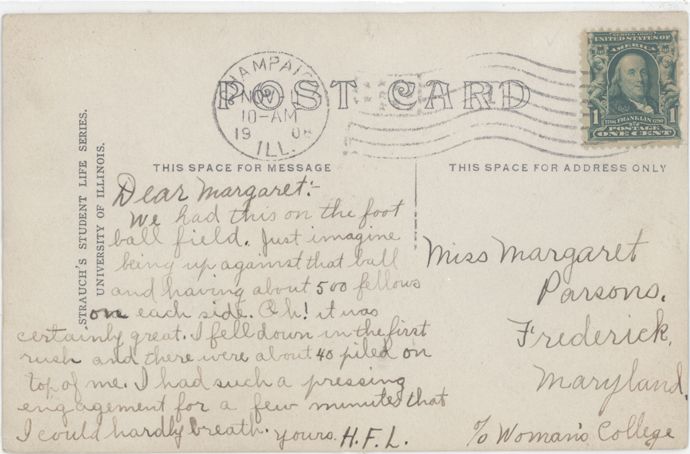 CHAMPAIGN
NOV
10-AM
1908
ILL.
POST CARD
SERIES 1902
UNITED STATES OF
AMERICA
1 FRANKLIN 1
POSTAGE
ONE CENT
THIS SPACE FOR MESSAGE
THIS SPACE FOR ADDRESS ONLY
STRAUCH'S STUDENT LIFE SERIES.
UNIVERSITY OF ILLINOIS.
Dear Margaret:-
We had this on the foot
ball field. Just imagine
being up against that ball
and having about 500 fellows
on each side. Oh! it was
certainly great. I fell down in the first
rush and there were about 40 piled on
top of me. I had such a pressing
engagement for a few minutes that
I could hardly breath. yours. H.F.L.
Miss Margaret
Parsons.
Frederick,
Maryland.
c/o Woman's College